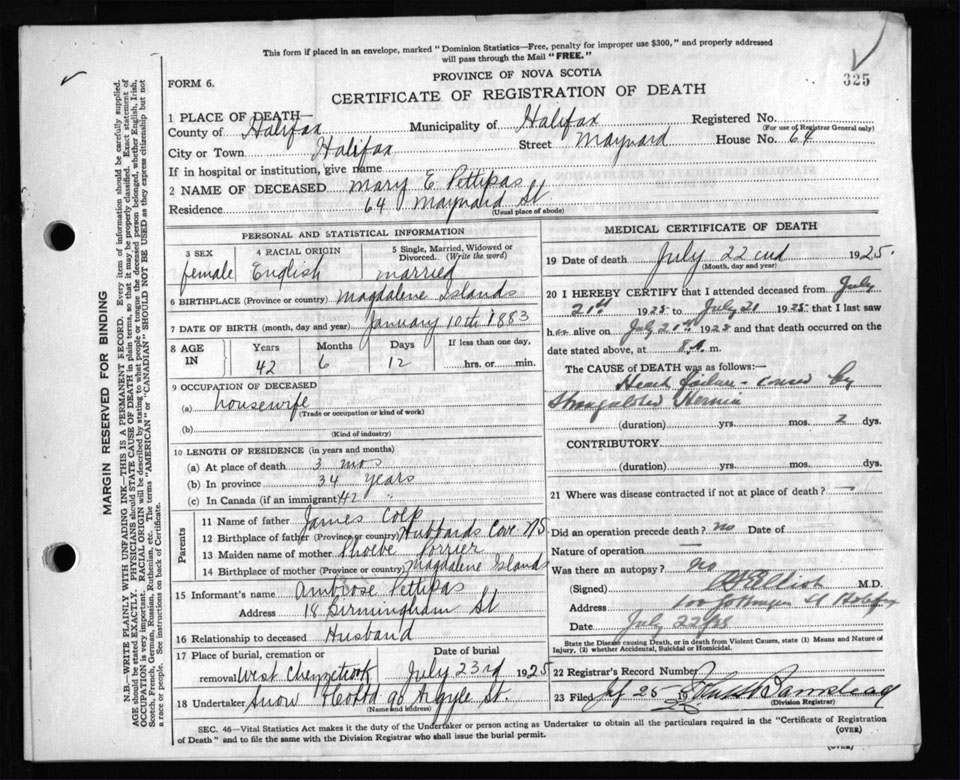 This form if placed in an envelope, marked "Dominion Statistics—Free, penalty for improper use $300," and properly addressed
will pass through the Mail "FREE."
325
FORM 6.
PROVINCE OF NOVA SCOTIA
CERTIFICATE OF REGISTRATION OF DEATH
1 PLACE OF DEATH—
County of Halifax Municipality of Halifax Registered No.
(For use of Registrar General only)
City or Town Halifax Street Maynard House No. 64
If in hospital or institution, give name
2 NAME OF DECEASED Mary E Pettipas
Residence 64 Maynard St
(Usual place of abode)
PERSONAL AND STATISTICAL INFORMATION
3 SEX 4 RACIAL ORIGIN 5 Single, Married, Widowed or
Divorced. (Write the word)
female English married
6 BIRTHPLACE (Province or country) Magdalene Islands
7 DATE OF BIRTH (month, day and year) January 10th 1883
8 AGE IN Years Months Days If less than one day,
42 6 12 hrs. or min.
9 OCCUPATION OF DECEASED
(a) housewife
(Trade or occupation or kind of work)
(b)
(Kind of industry)
10 LENGTH OF RESIDENCE (in years and months)
(a) At place of death 3 mos
(b) In province 34 years
(c) In Canada (if an immigrant) 42 "
Parents
11 Name of father James Colp
12 Birthplace of father (Province or country) Hubbards Cove NS
13 Maiden name of mother Phoebe
14 Birthplace of mother (Province or country) Magdalene Islands
15 Informant's name Ambrose Pettipas
Address 18 Birmingham St
16 Relationship to deceased Husband
17 Place of burial, cremation or Date of burial
removal West Chezzetcook July 23rd 1925
18 Undertaker Snow 90 Argyle St.
(Name and address)
MEDICAL CERTIFICATE OF DEATH
19 Date of death July 22 1925
(Month, day and year)
20 I HEREBY CERTIFY that I attended deceased from July
21st 1925 to July 21 1925 that I last saw
her alive on July 21st 1925 and that death occurred on
date stated above, at 8 a. m.
The CAUSE OF DEATH was as follows:—
Heart failure - caused by
Strangulated Hernia
(duration) yrs. mos. 2 dys.
CONTRIBUTORY
(duration) yrs. mos. dys.
21 Where was disease contracted if not at place of death? —
Did an operation precede death? no Date of
Nature of operation —
Was there an autopsy? no
(Signed) Elliot M.D.
Address 100 Gottingen St Halifax
Date July 22/25
State the Disease causing Death, or in death from Violent Causes, state (1) Means and Nature of
Injury, (2) whether Accidental, Suicidal or Homicidal.
22 Registrar's Record Number
23 Filed 25 19
(Division Registrar)
SEC. 46—Vital Statistics Act makes it the duty of the Undertaker or person acting as Undertaker to obtain all the particulars required in the "Certificate of Registration
of Death" and to file the same with the Division Registrar who shall issue the burial permit.
(OVER)
(OVER)
MARGIN RESERVED FOR BINDING
N.B.—WRITE PLAINLY WITH UNFADING INK—THIS IS A PERMANENT RECORD. Every item of information should be carefully supplied.
AGE should be stated EXACTLY. PHYSICIANS should STATE CAUSE OF DEATH in plain terms, so that it may be properly classified. Exact statement of
OCCUPATION is very important. RACIAL ORIGIN will be described by stating to what people or tongue the deceased person belonged, whether English, Irish,
Scotch, French, German, Russian, Ruthenian, etc. The terms "AMERICAN" or "CANADIAN" SHOULD NOT BE USED as they express citizenship but not
a race or people. See instructions on back of Certificate.